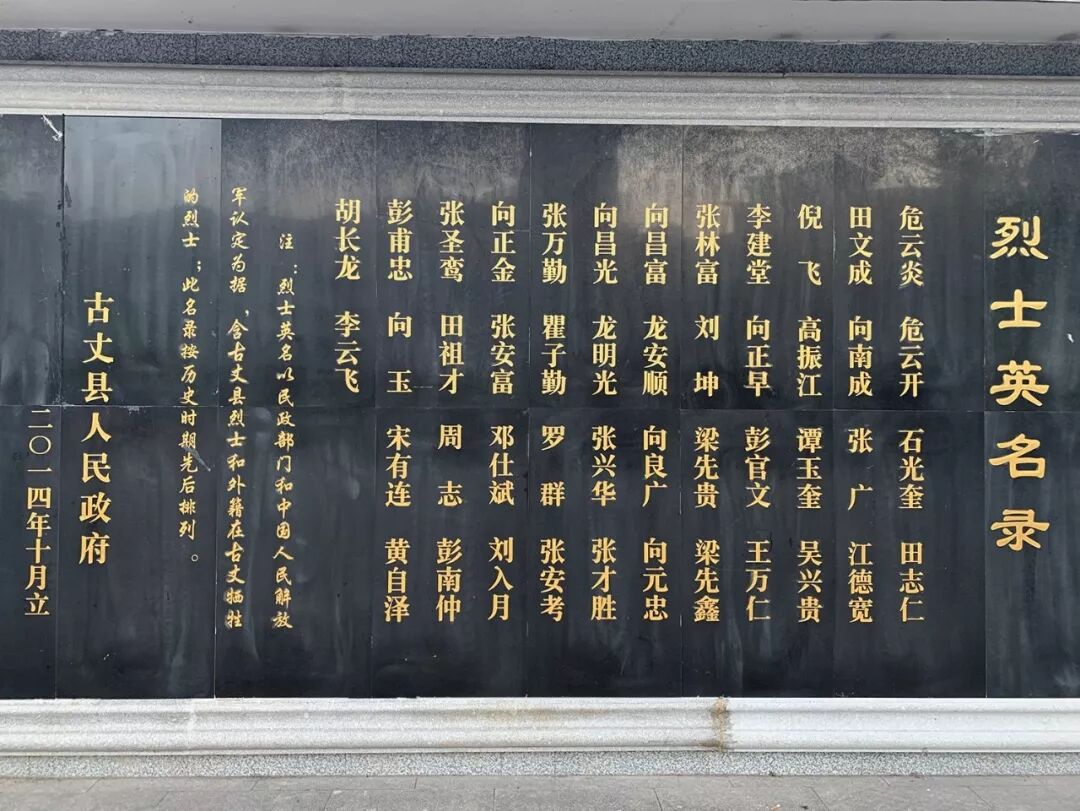 烈士英名录
危云炎 危云开 石光奎 田志仁
田文成 向南成 张广 江德宽
倪飞 高振江 谭玉奎 吴兴贵
李建堂 向正早 彭官文 王万仁
张林富 刘坤 梁先贵 梁先鑫
向昌富 龙安顺 向良广 向元忠
向昌光 龙明光 张兴华 张才胜
张万勤 瞿子勤 罗群 张安考
向正金 张安富 邓仕斌 刘入月
张圣鸾 田祖才 周志 彭南仲
彭甫忠 向玉 宋有连 黄自泽
胡长龙 李云飞
注：烈士英名以民政部门和中国人民解放
军认定为据，含古丈县烈士和外籍在古丈牺牲
的烈士；此名录按历史时期先后排列。
古丈县人民政府
二〇一四年十月立